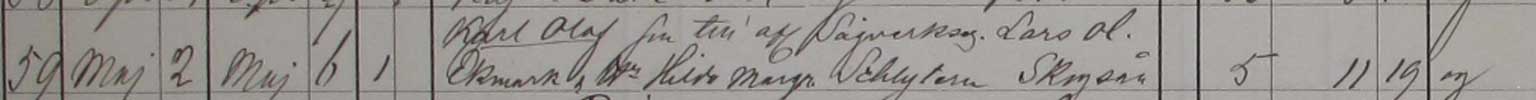 Karl Olof son till af Sågverksag. Lars Ol.
59 Maj 2 Maj 6 1 Ekmark, Hilda Margr. Schlytern Skogsån 5 11 19